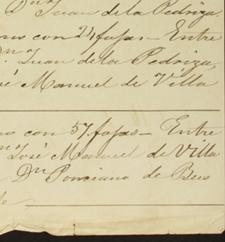 Dn Juan de la Pedriza
con 24 fojas — Entre
Dn Juan de la Pedriza,
José Manuel de Villa
con 57 fojas — Entre
José Manuel de Villa
Dn Ponciano de